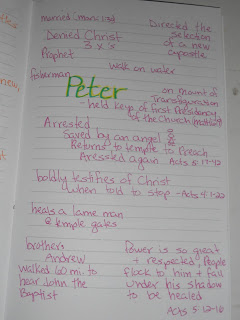 married (mark 1:30)
Directed the
selection
of a new
apostle
Denied Christ
3 x's
Prophet
walk on water
fisherman
Peter
on mount of
Transfiguration
held keys of first Presidency
of the Church
Arrested
Saved by an angel
Returns to temple to preach
Arressted again Acts 5:17-42
boldly testifies of Christ
when told to stop -Acts 4:1-22
heals a lame man
@ temple gates
brothers
Andrew
walked 60 mi. to
hear John the
Baptist
Power is so great
+ respected? People
flock to him + fall
under his shadow
to be healed
Acts 5:12-16